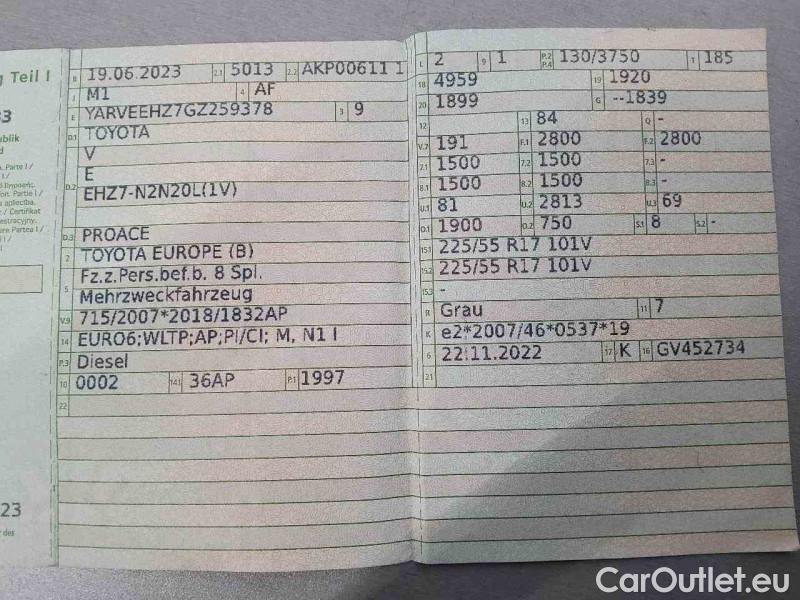 g Teil I
33
publik
d
, Parte I /
B 19.06.2023 2.1 5013 2.2 AKP00611 1
J M1 4 AF
E YARVEEHZ7GZ259378 3 9
D.1 TOYOTA
V
D.2 E
EHZ7-N2N20L(1V)
D.3 PROACE
2 TOYOTA EUROPE (B)
5 Fz.z.Pers.bef.b. 8 Spl.
Mehrzweckfahrzeug
V.9 715/2007*2018/1832AP
14 EURO6;WLTP;AP;PI/CI; M, N1 I
P.3 Diesel
10 0002 14.1 36AP P.1 1997
22
L 2 9 1 P.2 P.4 130/3750 T 185
18 4959 19 1920
20 1899 G --1839
12 13 84 Q -
V.7 191 F.1 2800 F.2 2800
7.1 1500 7.2 1500 7.3 -
8.1 1500 8.2 1500 8.3 -
U.1 81 U.2 2813 U.3 69
O.1 1900 O.2 750 S.1 8 S.2 -
15.1 225/55 R17 101V
15.2 225/55 R17 101V
15.3 -
R Grau 11 7
K e2*2007/46*0537*19
6 22.11.2022 17 K 16 GV452734
21
23
CarOutlet.eu